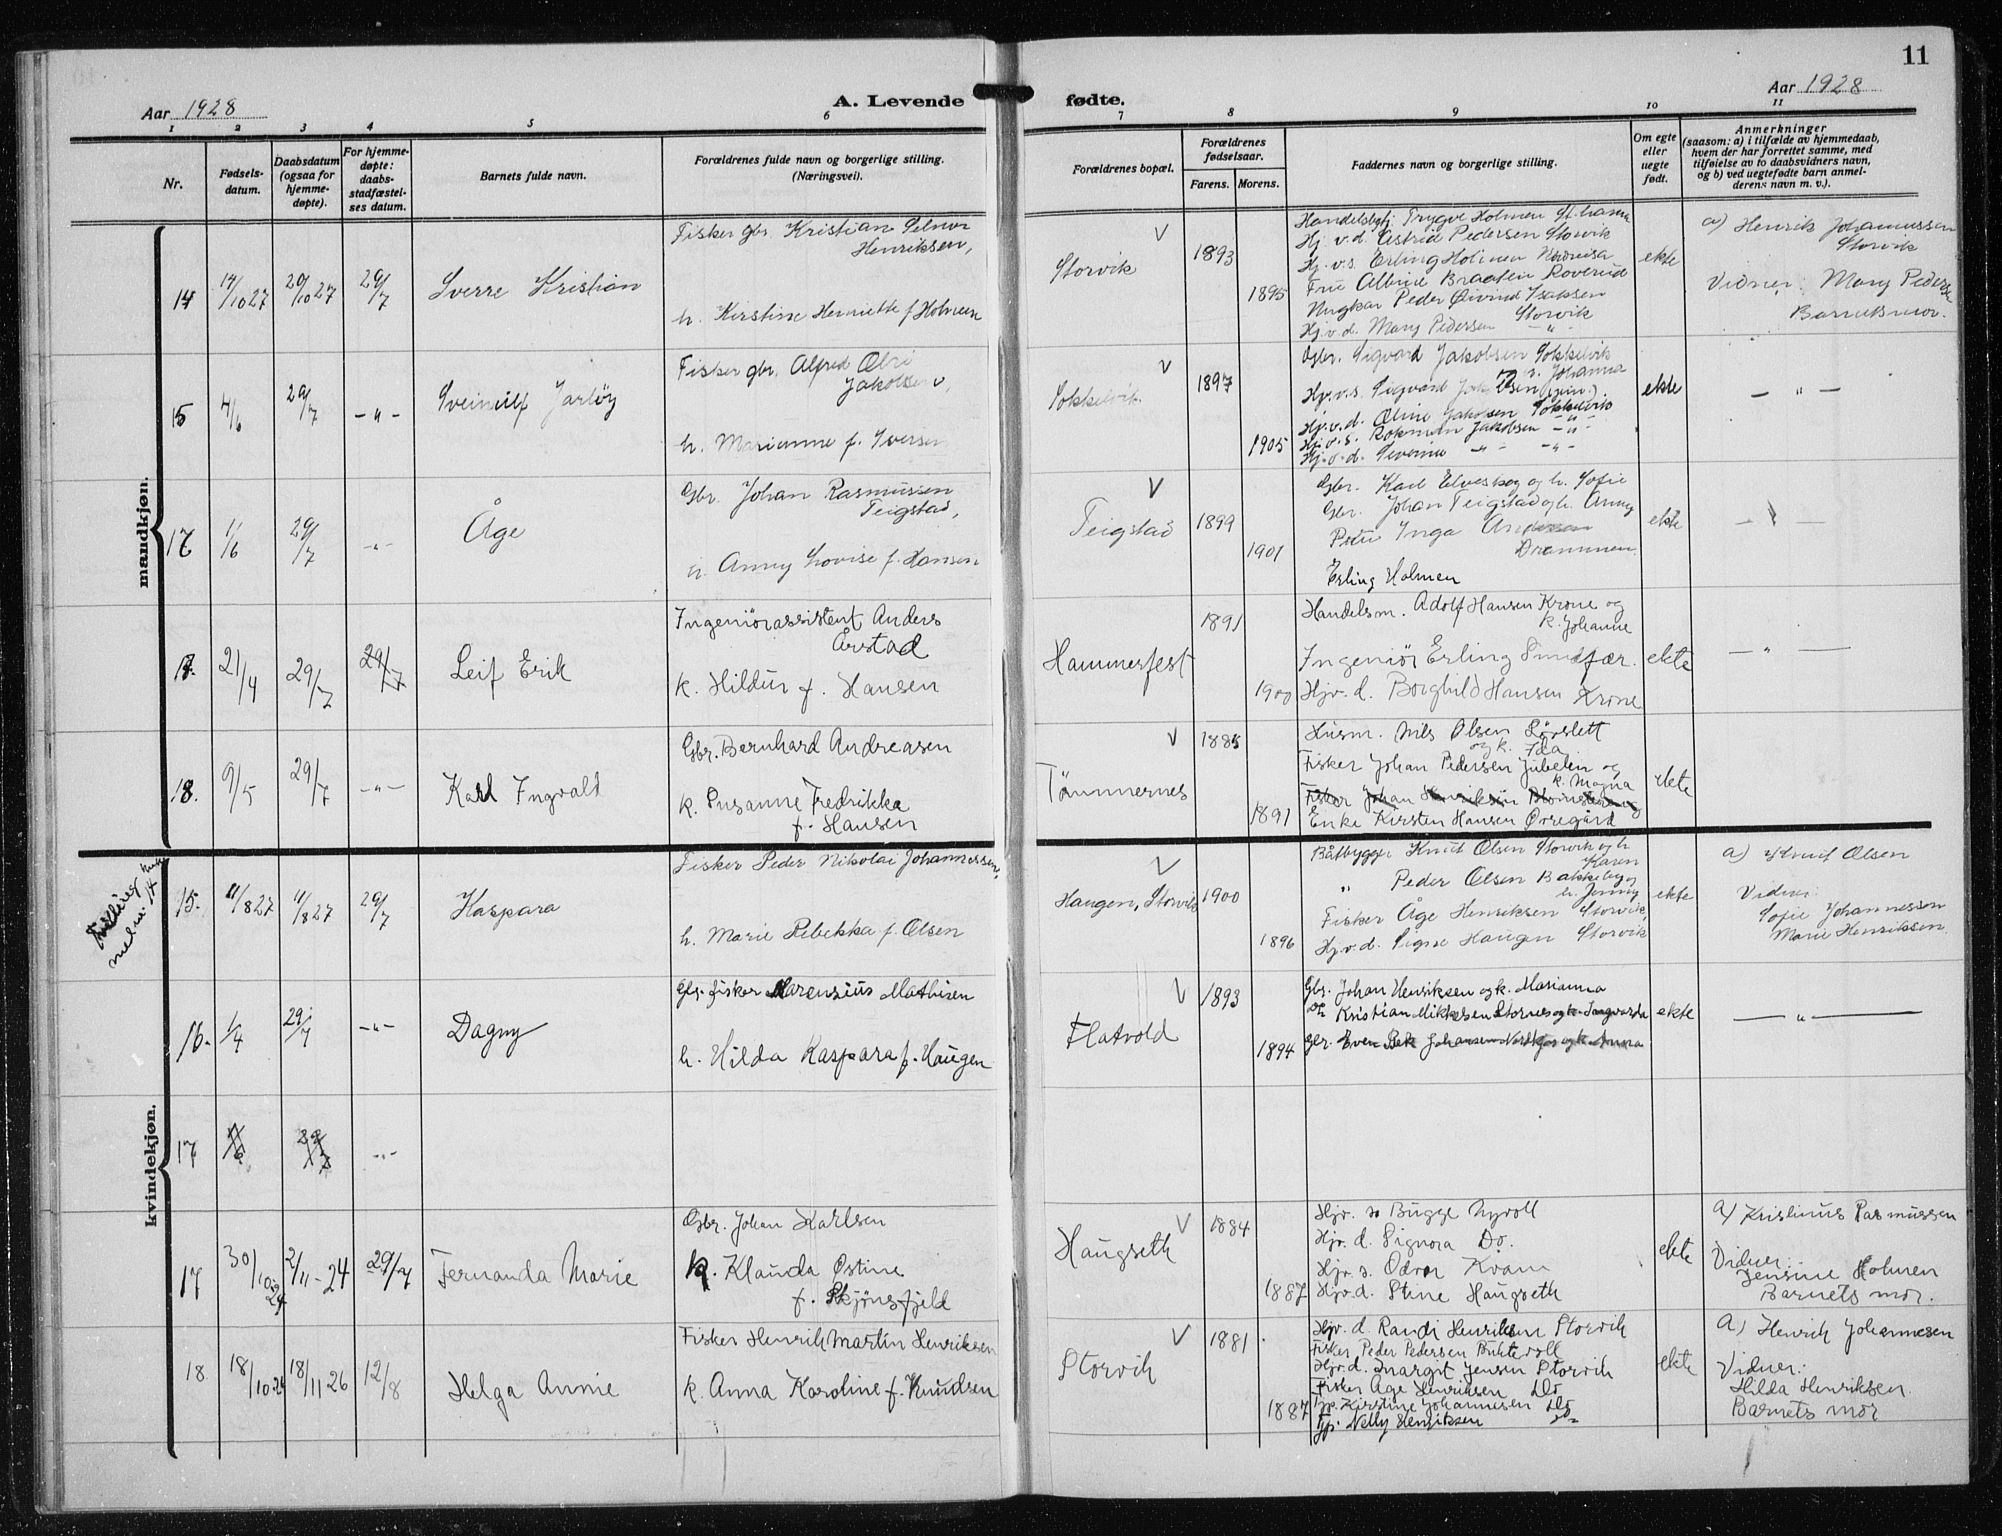 11
Aar 1928
A. Levende fødte.
Aar 1928
1 2 3 4 5 6 7 8 9 10 11
Nr.
Fødsels-
datum.
Daabsdatum
(ogsaa for
hjemme-
døpte).
For hjemme-
døpte:
daabs-
stadfæstel-
ses datum.
Barnets fulde navn.
Forældrenes fulde navn og borgerlige stilling.
(Næringsvei).
Forældrenes bopæl.
Forældrenes
fødselsaar.
Farens. Morens.
Faddernes navn og borgerlige stilling.
Om egte
eller
uegte
født.
Anmerkninger
(saasom: a) i tilfælde av hjemmedaab,
hvem der har forrettet samme, med
tilføielse av to daabsvidners navn,
og b) ved uegtefødte barn anmel-
derens navn m. v.).
mandkjøn.
14 14/10 27 29/10 27 29/7 Sverre Kristian
Fisker gbr. Kristian Selmer
Henriksen,
h. Kirstine Henriette f. Holmen
Storvik V 1893 1895
Handelsbetj. Trygve Holmen
Hj. v. d. Astrid Pedersen Storvik
Hj. v. s. Erling Holmen
Fru Albine Braaten Roverud
Ungkar Peder Øivind Isaksen
Storvik
Hj. v. d. Mary Pedersen - " -
ekte
a) Henrik Johannessen
Storvik
Vidner: Mary Pedersen
Barnets mor.
15 4/6 29/7 - " - Sveinulf Jarløy
Fisker gbr. Alfred
Jakobsen,
h. Marianne f. Iversen
Sokkelvik V 1897 1905
Gbr. Sigvard Jakobsen Sokkelvik
Johanna
Hj. v. d. Oline Jakobsen Sokkelvik
Jakobsen - " -
Hj. v. d. Severine - " - - " -
ekte
- " -
17 1/6 29/7 - " - Åge
Gbr. Johan Rasmussen
Teigstad,
h. Anny Lovise f. Hansen
Teigstad V 1899 1901
Gbr. Karl Elveskog og h. Sofie
Gbr. Johan Teigstad og h. Anny
Inga Andersen
Drammen
Erling Holmen
ekte
- " -
17. 21/4 29/7 29/7 Leif Erik
Ingeniørassistent Anders
Årstad
k. Hildur f. Hansen
Hammerfest 1891 1900
Handelsm. Adolf Hansen Krone og
k. Johanne
Ingeniør Erling
Hjv. d. Borghild Hansen Krone
ekte
- " -
18. 9/5 29/7 - " - Karl Ingvald
Gbr. Bernhard Andreasen
k. Susanne Fredrikka
f. Hansen
Tømmernes V 1885 1891
Husm. Nils Olsen Sørslett
og k. Ida
Fisker Johan Pedersen Jubelen og
k. Magna
Fisker Johan Henriksen
Enke Kirsten Hansen Ørregård
ekte
kvindekjøn.
15. 11/8 27 11/8 27 29/7 Kaspara
Fisker Peder Nikolai Johannessen,
h. Marie Rebekka f. Olsen
Haugen, Storvik V 1900 1896
Båtbygger Knut Olsen Storvik og h.
Karen
" Peder Olsen Bakkeby og
h. Jenny
Fisker Åge Henriksen Storvik,
Hj. v. d. Signe Haugen Storvik
ekte
a) Knut Olsen
Vidner:
Sofie Johannessen
Marie Henriksen
16. 1/4 29/7 - " - Dagny
Gbr. fisker Marensius Mathisen
h. Hilda Kaspara f. Haugen
Flatvold V 1893 1894
Gbr. Johan Henriksen og k. Marianna
Kristian Mikkelsen Stornes og k. Ingvarda
Gbr. Even Bek Johansen Nordkjos og k. Anna
ekte
- " -
17 - " -
17 30/10 24 2/11 - 24 29/7 Fernanda Marie
Gbr. Johan Karlsen
k. Klauda Ostine
f. Skjønsfjeld
Haugseth V 1884 1887
Hjv. s. Bugge Nyvoll
Hjv. d. Signora Do.
Hjv. s. Odvar Kvam
Hjv. d. Stine Haugseth
ekte
a) Kristinus Rasmussen
Vidner:
Jensine Holmen
Barnets mor.
18. 18/10 26 18/11 26 12/8 Helga Annie
Fisker Henrik Martin Henriksen
k. Anna Karoline f. Knudsen
Storvik V 1881 1887
Hjv. d. Randi Henriksen Storvik
Fisker Peder Pedersen Buktevoll
Hjv. d. Margit Jensen Storvik
Fisker Åge Henriksen Do
Kirstine Johannesen Do
Nelly Henriksen Do
ekte
a) Henrik Johannesen
Vidner:
Hilda Henriksen.
Barnets mor